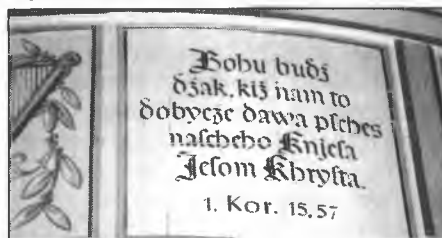 Bohu budź
dźak, kiž nam to
dobycze dawa pſches
naſcheho Knjeſa
Jeſom Khryſta.
1. Kor. 15,57